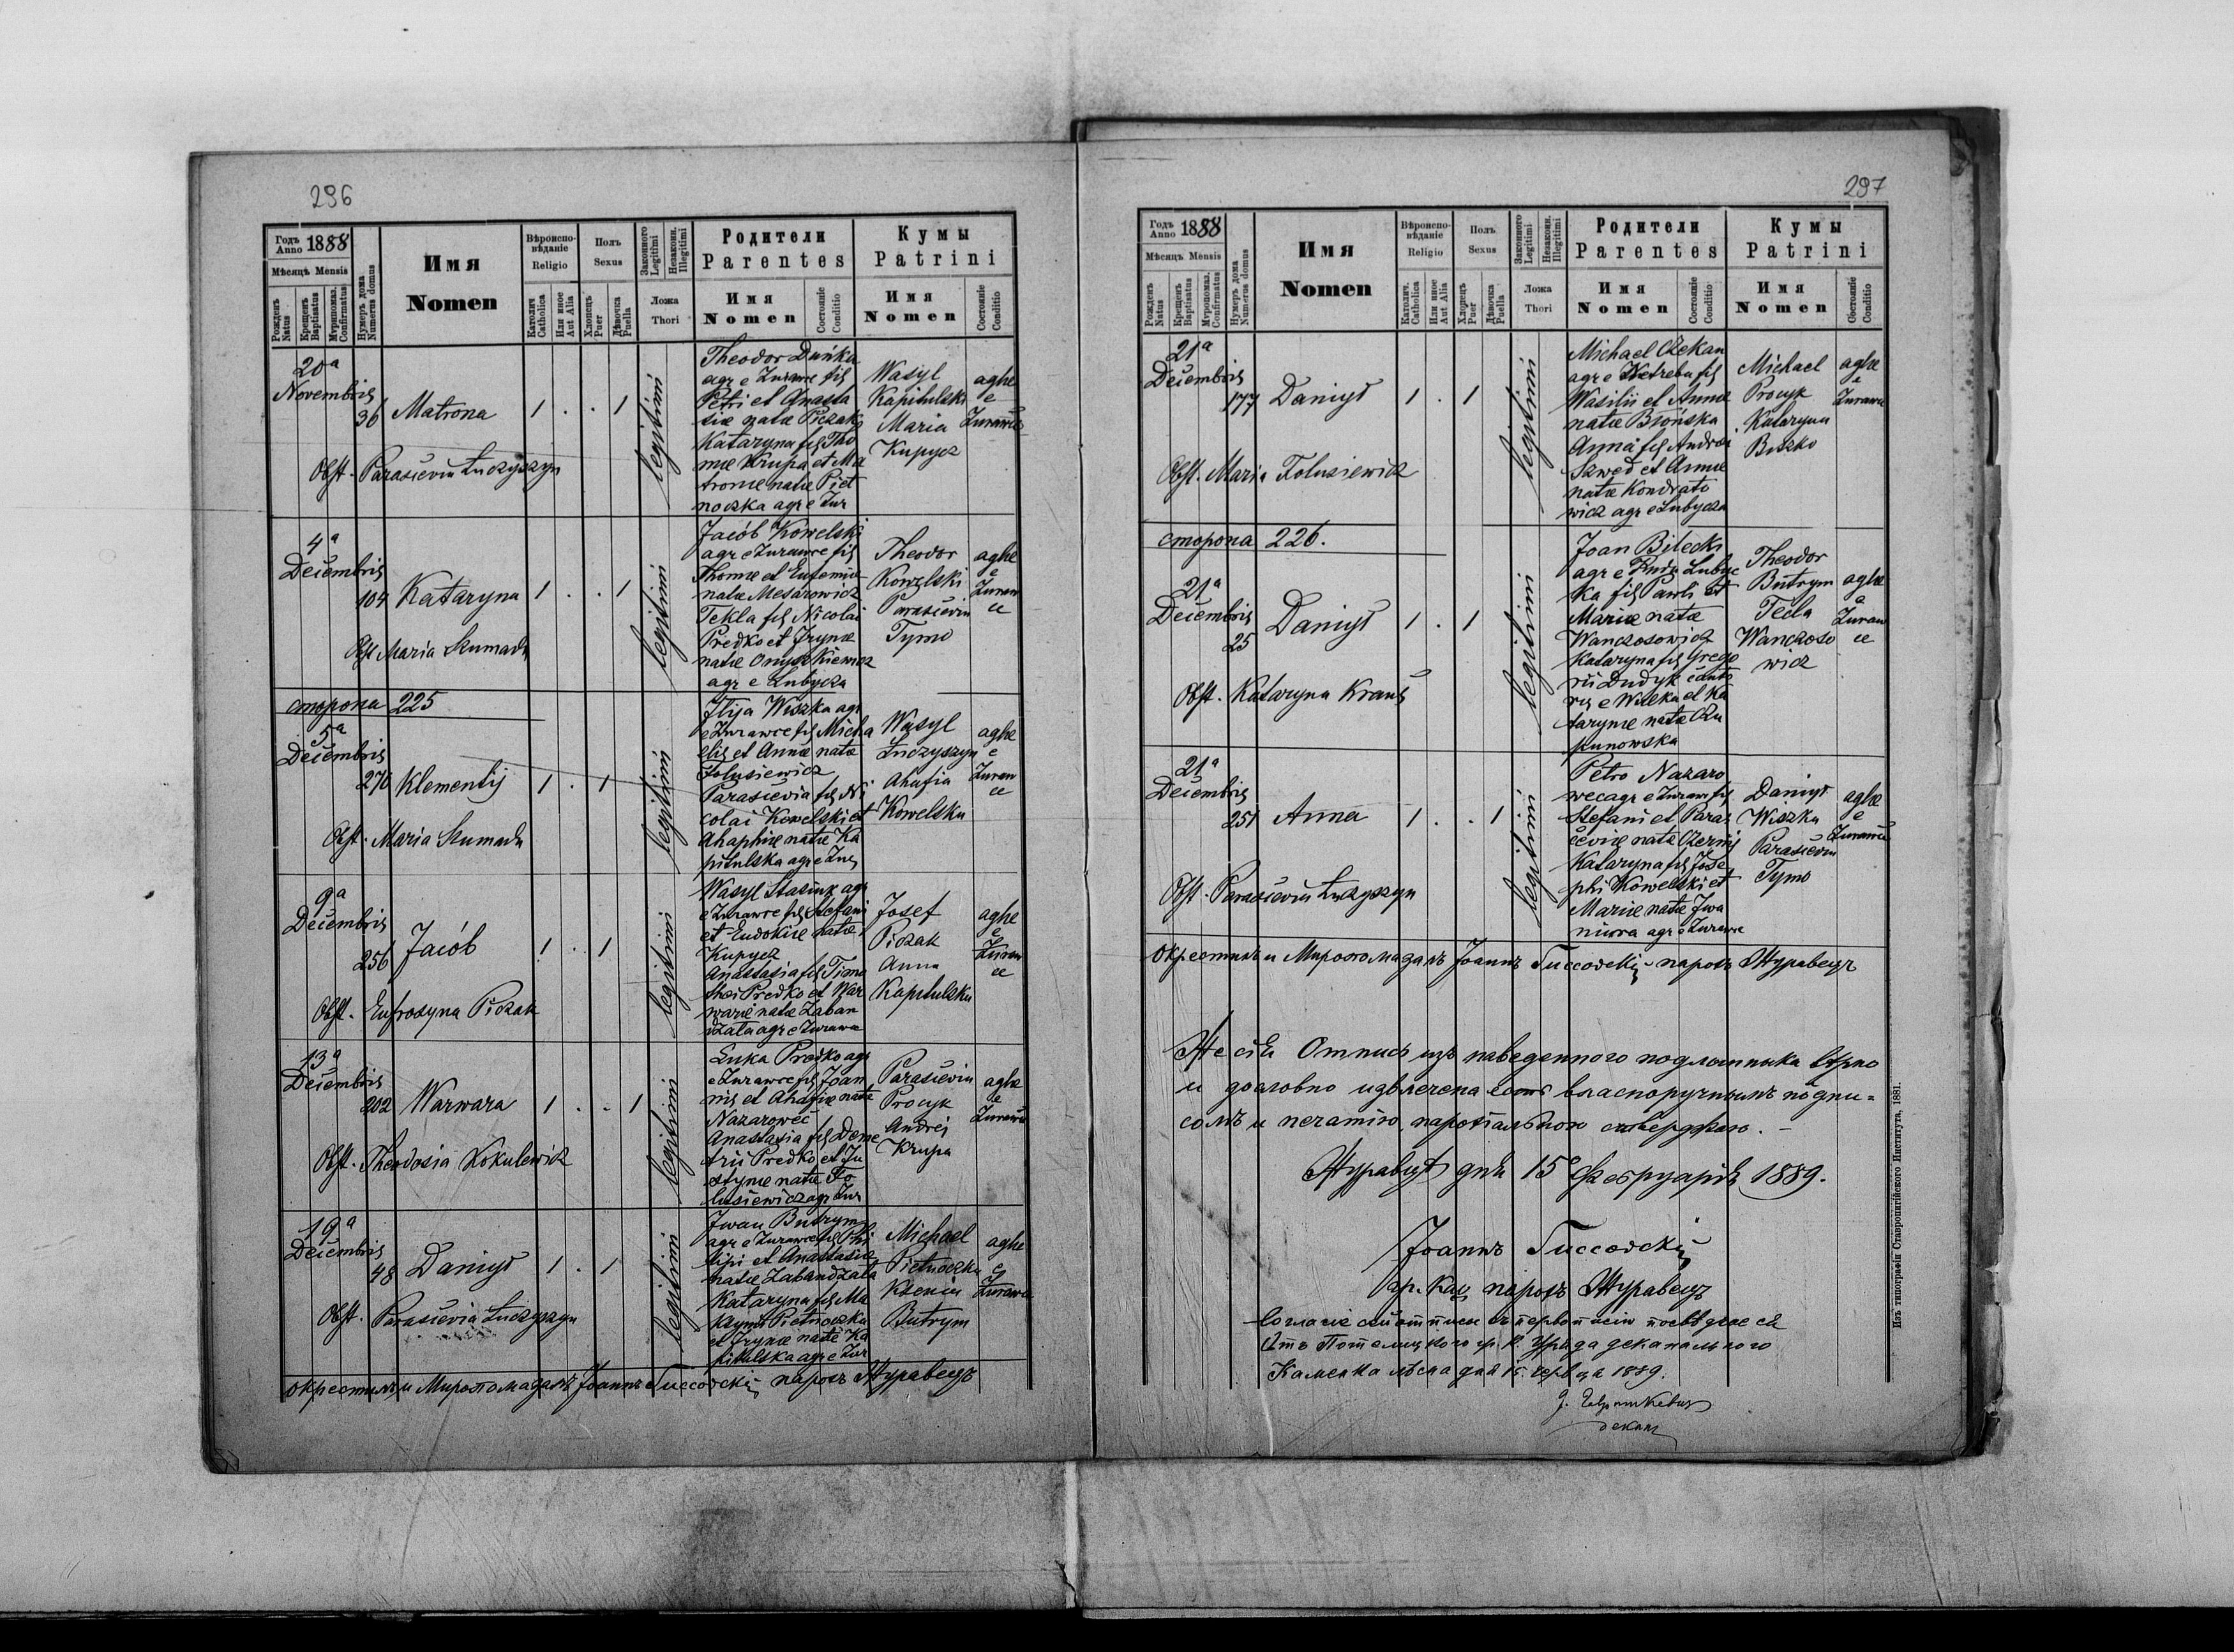 296
Годъ Anno 1888
Мѣсяцъ Mensis
Рожденъ Natus
Крещенъ Baptisatus
Мѵропомаз. Confirmatus
Нумеръ дома Numerus domus
Имя
Nomen
Вѣроиспо-
вѣданіе
Religio
Католич. Catholica
Или иное Aut Alia
Полъ
Sexus
Хлопецъ Puer
Дѣвочка Puella
Законного Legitimi
Незаконн. Illegitimi
Ложа
Thori
Родители
Parentes
Имя
Nomen
Состояніе Conditio
Кумы
Patrini
Имя
Nomen
Состояніе Conditio
20ª
Novembris
36 Matrona 1 . . 1
legitimi
Obst. Parascevia Łuczyszyn
Theodor Duńka
agr e Zurawce fil
Petri et Anasta
siæ natæ Piczak
Kataryna fil Tho
mæ Krupa et Ma
tronæ natæ Piet
noczka agr e Zur
Wasyl
Kapitulski
Maria
Kupycz
aghe
e
Zurawce
4ª
Decembris
104 Kataryna 1 . . 1
legitimi
Obst Maria Szumada
Jacób Kowelski
agr e Zurawce fil
Thomæ et Eufemiæ
natæ Mesarowicz
Tekla fil Nicolai
Predko et Irynæ
natæ Onyszkiewicz
agr e Lubycza
Theodor
Kowelski
Parascevia
Tymo
aghe
e
Zuraw
ce
сторона 225
5ª
Decembris
270 Klementij 1 . 1
legitimi
Obst. Maria Szumada
Ilija Wiszka agr
e Zurawce fil Micha
elis et Annæ natæ
Folusiewicz
Parascevia fil Ni
colai Kowelski et
Ahaphiæ natæ Ka
pitulska agr e Zur
Wasyl
Łuczyszyn
Ahafia
Kowelska
aghe
e
Zuraw
ce
9ª
Decembris
256 Jacób 1 . 1
legitimi
Obst. Eufrosyna Piczak
Wasyl Stasiuk agr
e Zurawce fil Stefani
et Eudokiæ natæ
Kupycz
Anastasia fil Timo
thei Predko et War
waræ natæ Zaban
dzała agr e Zurawce
Josef
Piczak
Anna
Kapitulska
aghe
e
Zuraw
ce
13ª
Decembris
202 Warwara 1 . . 1
legitimi
Obst. Theodosia Kokulewicz
Luka Predko agr
e Zurawce fil Joan
nis et Ahafiæ natæ
Nazarowec
Anastasia fil Deme
trii Predko et Ju
stynæ natæ Fo
lusiewicz agr Zur
Parascevia
Procyk
Andrei
Krupa
aghe
e
Zurawce
19ª
Decembris
48 Daniył 1 . 1
legitimi
Obst. Parascevia Łuczyszyn
Iwan Butrym
agr e Zurawce fil Phi
lipi et Anastasiæ
natæ Zabandzała
Kataryna fil Ma
xymi Pietnoczka
et Irynæ natæ Ka
pitulska agr e Zur
Michael
Pietnoczka
Xenia
Butrym
aghe
e
Zurawce
Окрестилъ и Миропомазалъ Іоаннъ Гиссовскій парохъ Журавецъ
297
Годъ Anno 1888
Мѣсяцъ Mensis
Рожденъ Natus
Крещенъ Baptisatus
Мѵропомаз. Confirmatus
Нумеръ дома Numerus domus
Имя
Nomen
Вѣроиспо-
вѣданіе
Religio
Католич. Catholica
Или иное Aut Alia
Полъ
Sexus
Хлопецъ Puer
Дѣвочка Puella
Законного Legitimi
Незаконн. Illegitimi
Ложа
Thori
Родители
Parentes
Имя
Nomen
Состояніе Conditio
Кумы
Patrini
Имя
Nomen
Состояніе Conditio
21ª
Decembris
177 Daniył 1 . 1
legitimi
Obst. Maria Folusiewicz
Michael Czekan
agr e Netreba fil
Wasilii et Annæ
natæ Brońska
Anna fil Andreæ
Szwed et Annæ
natæ Kondrato
wicz agr e Lubycza
Michael
Procyk
Kataryna
Boszko
aghe
e
Zurawce
сторона 226.
21ª
Decembris
25 Daniył 1 . 1
legitimi
Obst. Kataryna Kraus
Joan Bilecki
agr e Ruda Lubyc
ka fil Pawli et
Mariæ natæ
Wanczosowicz
Kataryna fil Grego
rii Dudyk canto
ris e Wilka et Ka
tarynæ natæ Czu
punowska
Theodor
Butrym
Tecla
Wanczoso
wicz
aghe
e
Zuraw
ce
21ª
Decembris
251 Anna 1 . . 1
legitimi
Obst. Parascevia Łuczyszyn
Petro Nazaro
wec agr e Zuraw fil
Stefani et Paras
ceviæ natæ Czernij
Kataryna fil Jose
phi Kowelski et
Mariæ natæ Iwa
niura agr e Zurawce
Daniył
Wiszka
Parascevia
Tymo
aghe
e
Zurawce
Окрестилъ и Миропомазалъ Іоаннъ Гиссовскій парохъ Журавецъ
Же сей Отписъ изъ наведенного подлинника вѣрно
и дословно извлечена есть власноручнымъ подпи-
сомъ и печатію парохіальною стверджаю. -
Журавцѣ дня 15º Фебруарія 1889.
Іоаннъ Гиссовскій
гр. кат. парохъ Журавецъ
Согласіе сей отписи съ первописію посвѣдчаеся
Отъ Потелицкого гр. к. Уряда деканального
Каменка лѣсна дня 15. червця 1889.
декан
Изъ типографіи Ставропигійского Института, 1881.